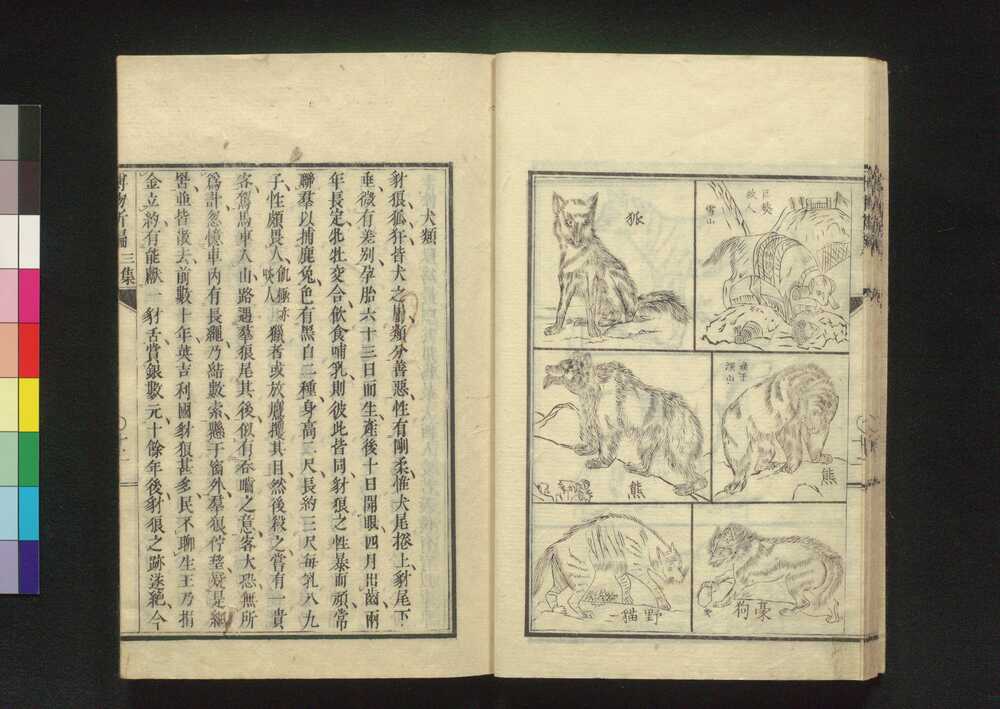 巨獒
救人
雪山
狐
熊
熊
豪狗
野猫
犬類
豺狼狐犴皆犬之屬類分善惡性有剛柔惟犬尾捲上豺尾下
垂微有差別孕胎六十三日而生產後十日開眼四月出齒兩
年長定牝牡交合飲食哺乳則彼此皆同豺狼之性暴而頑常
聯羣以捕鹿兔色有黑白二種身高二尺長約三尺每乳八九
子性頗畏人飢極亦啖人獵者或放鷹攫其目然後殺之嘗有一貴
客駕馬車入山路遇羣狼尾其後似有吞噬之意客大恐無所
爲計忽憶車內有長繩乃結數索懸于窗外羣狼佇望疑是網
罟並皆散去前數十年英吉利國豺狼甚多民不聊生王乃捐
金立約有能獻一豺舌賞銀數元十餘年後豺狼之跡遂絕今
博物新編三集